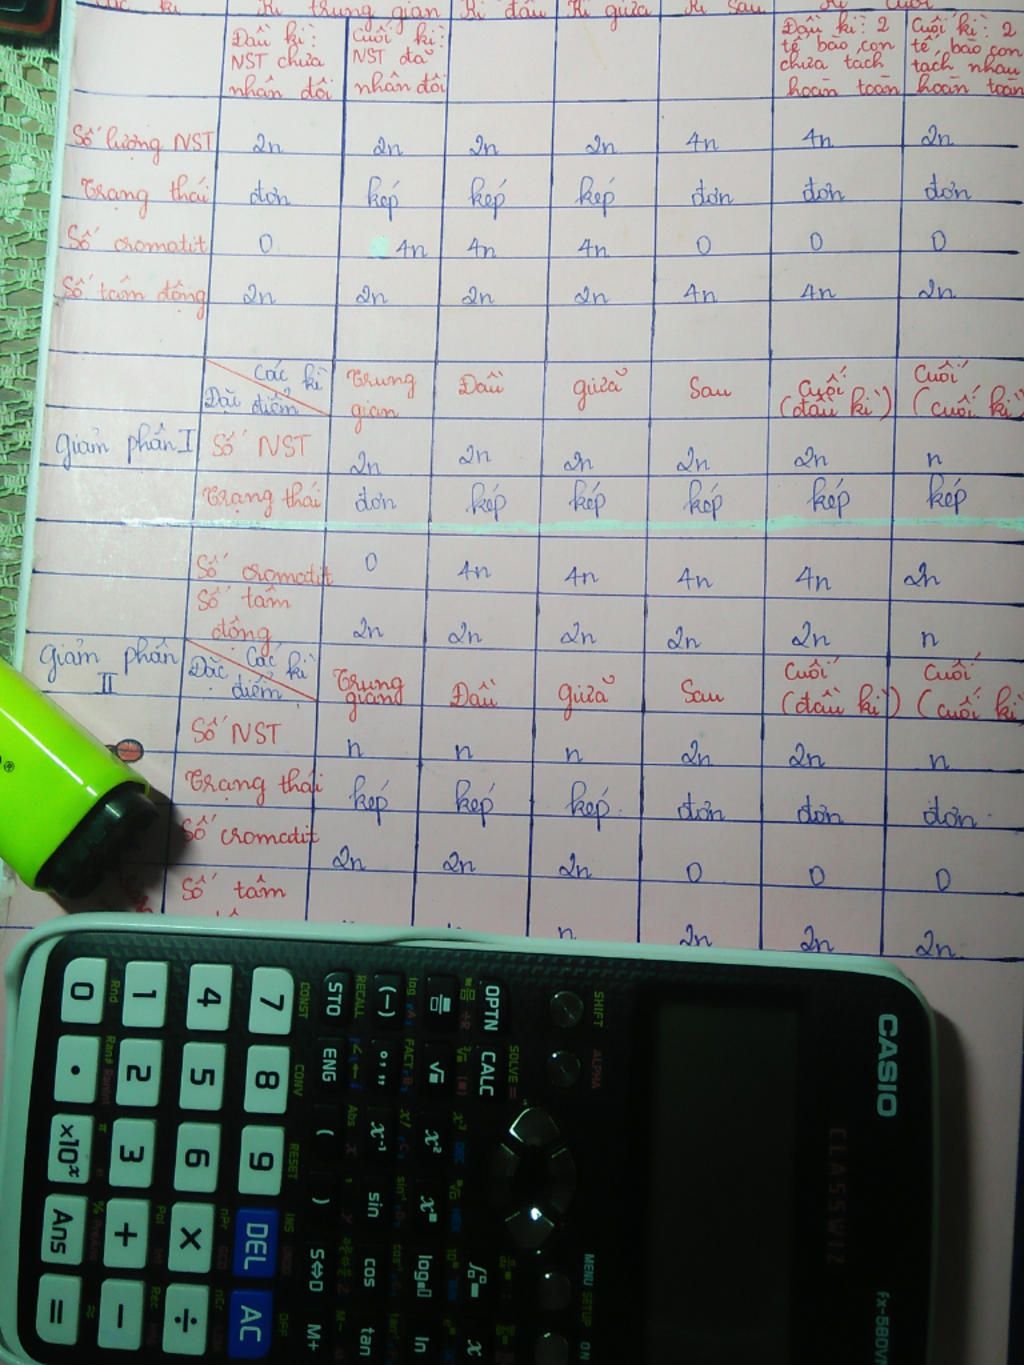 Kì trung gian Kì đầu Kì giữa Kì sau
Đầu kì: NST chưa nhân đôi
Cuối kì: NST đã nhân đôi
Đầu kì: 2 tế bào con chưa tách hoàn toàn
Cuối kì: 2 tế bào con tách nhau hoàn toàn
Số lượng NST 2n 2n 2n 2n 4n 4n 2n
Trạng thái đơn kép kép kép đơn đơn đơn
Số cromatit 0 4n 4n 4n 0 0 0
Số tâm động 2n 2n 2n 2n 4n 4n 2n
Các kì Đặc điểm Trung gian Đầu giữa Sau Cuối (đầu kì) Cuối (cuối kì)
Giảm phân I Số NST 2n 2n 2n 2n 2n n
Trạng thái đơn kép kép kép kép kép
Số cromatit 0 4n 4n 4n 4n 2n
Số tâm động 2n 2n 2n 2n 2n n
Giảm phân II Các kì Đặc điểm Trung giang Đầu giữa Sau Cuối (đầu kì) Cuối (cuối kì)
Số NST n n n 2n 2n n
Trạng thái kép kép kép đơn đơn đơn
Số cromatit 2n 2n 2n 0 0 0
Số tâm n 2n 2n 2n
CASIO
CLASSWIZ
SHIFT ALPHA MENU SETUP ON
OPTN CALC SOLVE =
x² sin cos tan log ln
STO ENG ( ) S⇔D M+
RECALL FACT Abs
CONST CONV RESET INS OFF
7 8 9 DEL AC
4 5 6 × ÷
1 2 3 + −
Rnd Ran# Pol Rec
0 . ×10ˣ Ans =